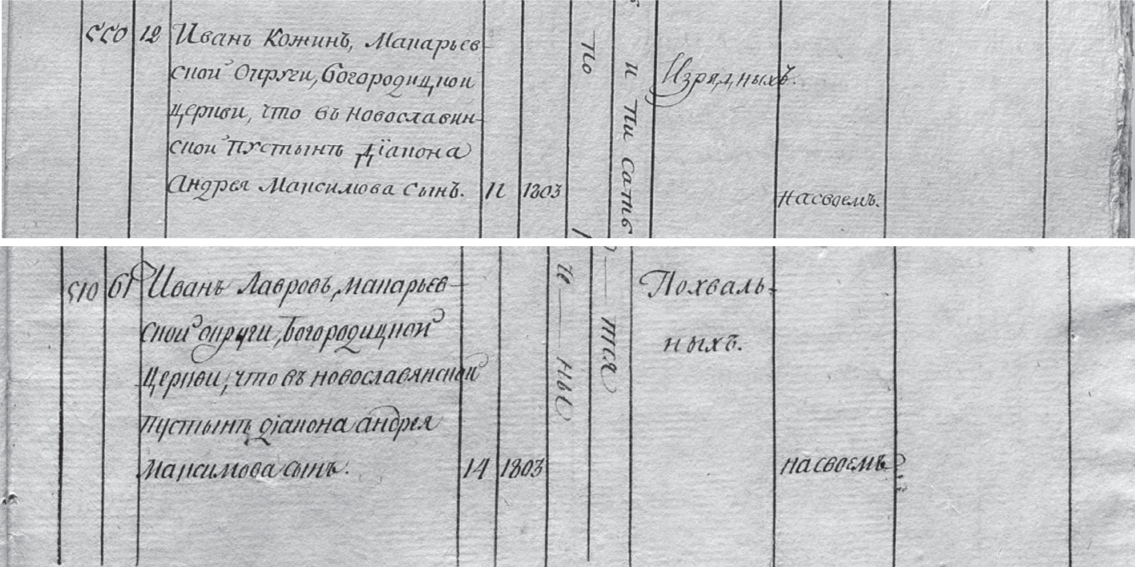 550 12 Иванъ Кожинъ, Макарьев-
ской Округи, Богородицкой
церкви, что въ новославин-
ской пустынѣ Дїакона
Андрея Максимова сынъ. 11 1803
Изрядныхъ.
насвоемъ.
510 61 Иванъ Лавровъ, макарьев-
ской округи, Богородицкой
Церкви, что въ новославянской
пустынѣ діакона андрея
Максимова сынъ. 14 1803
Похваль-
ныхъ.
насвоемъ